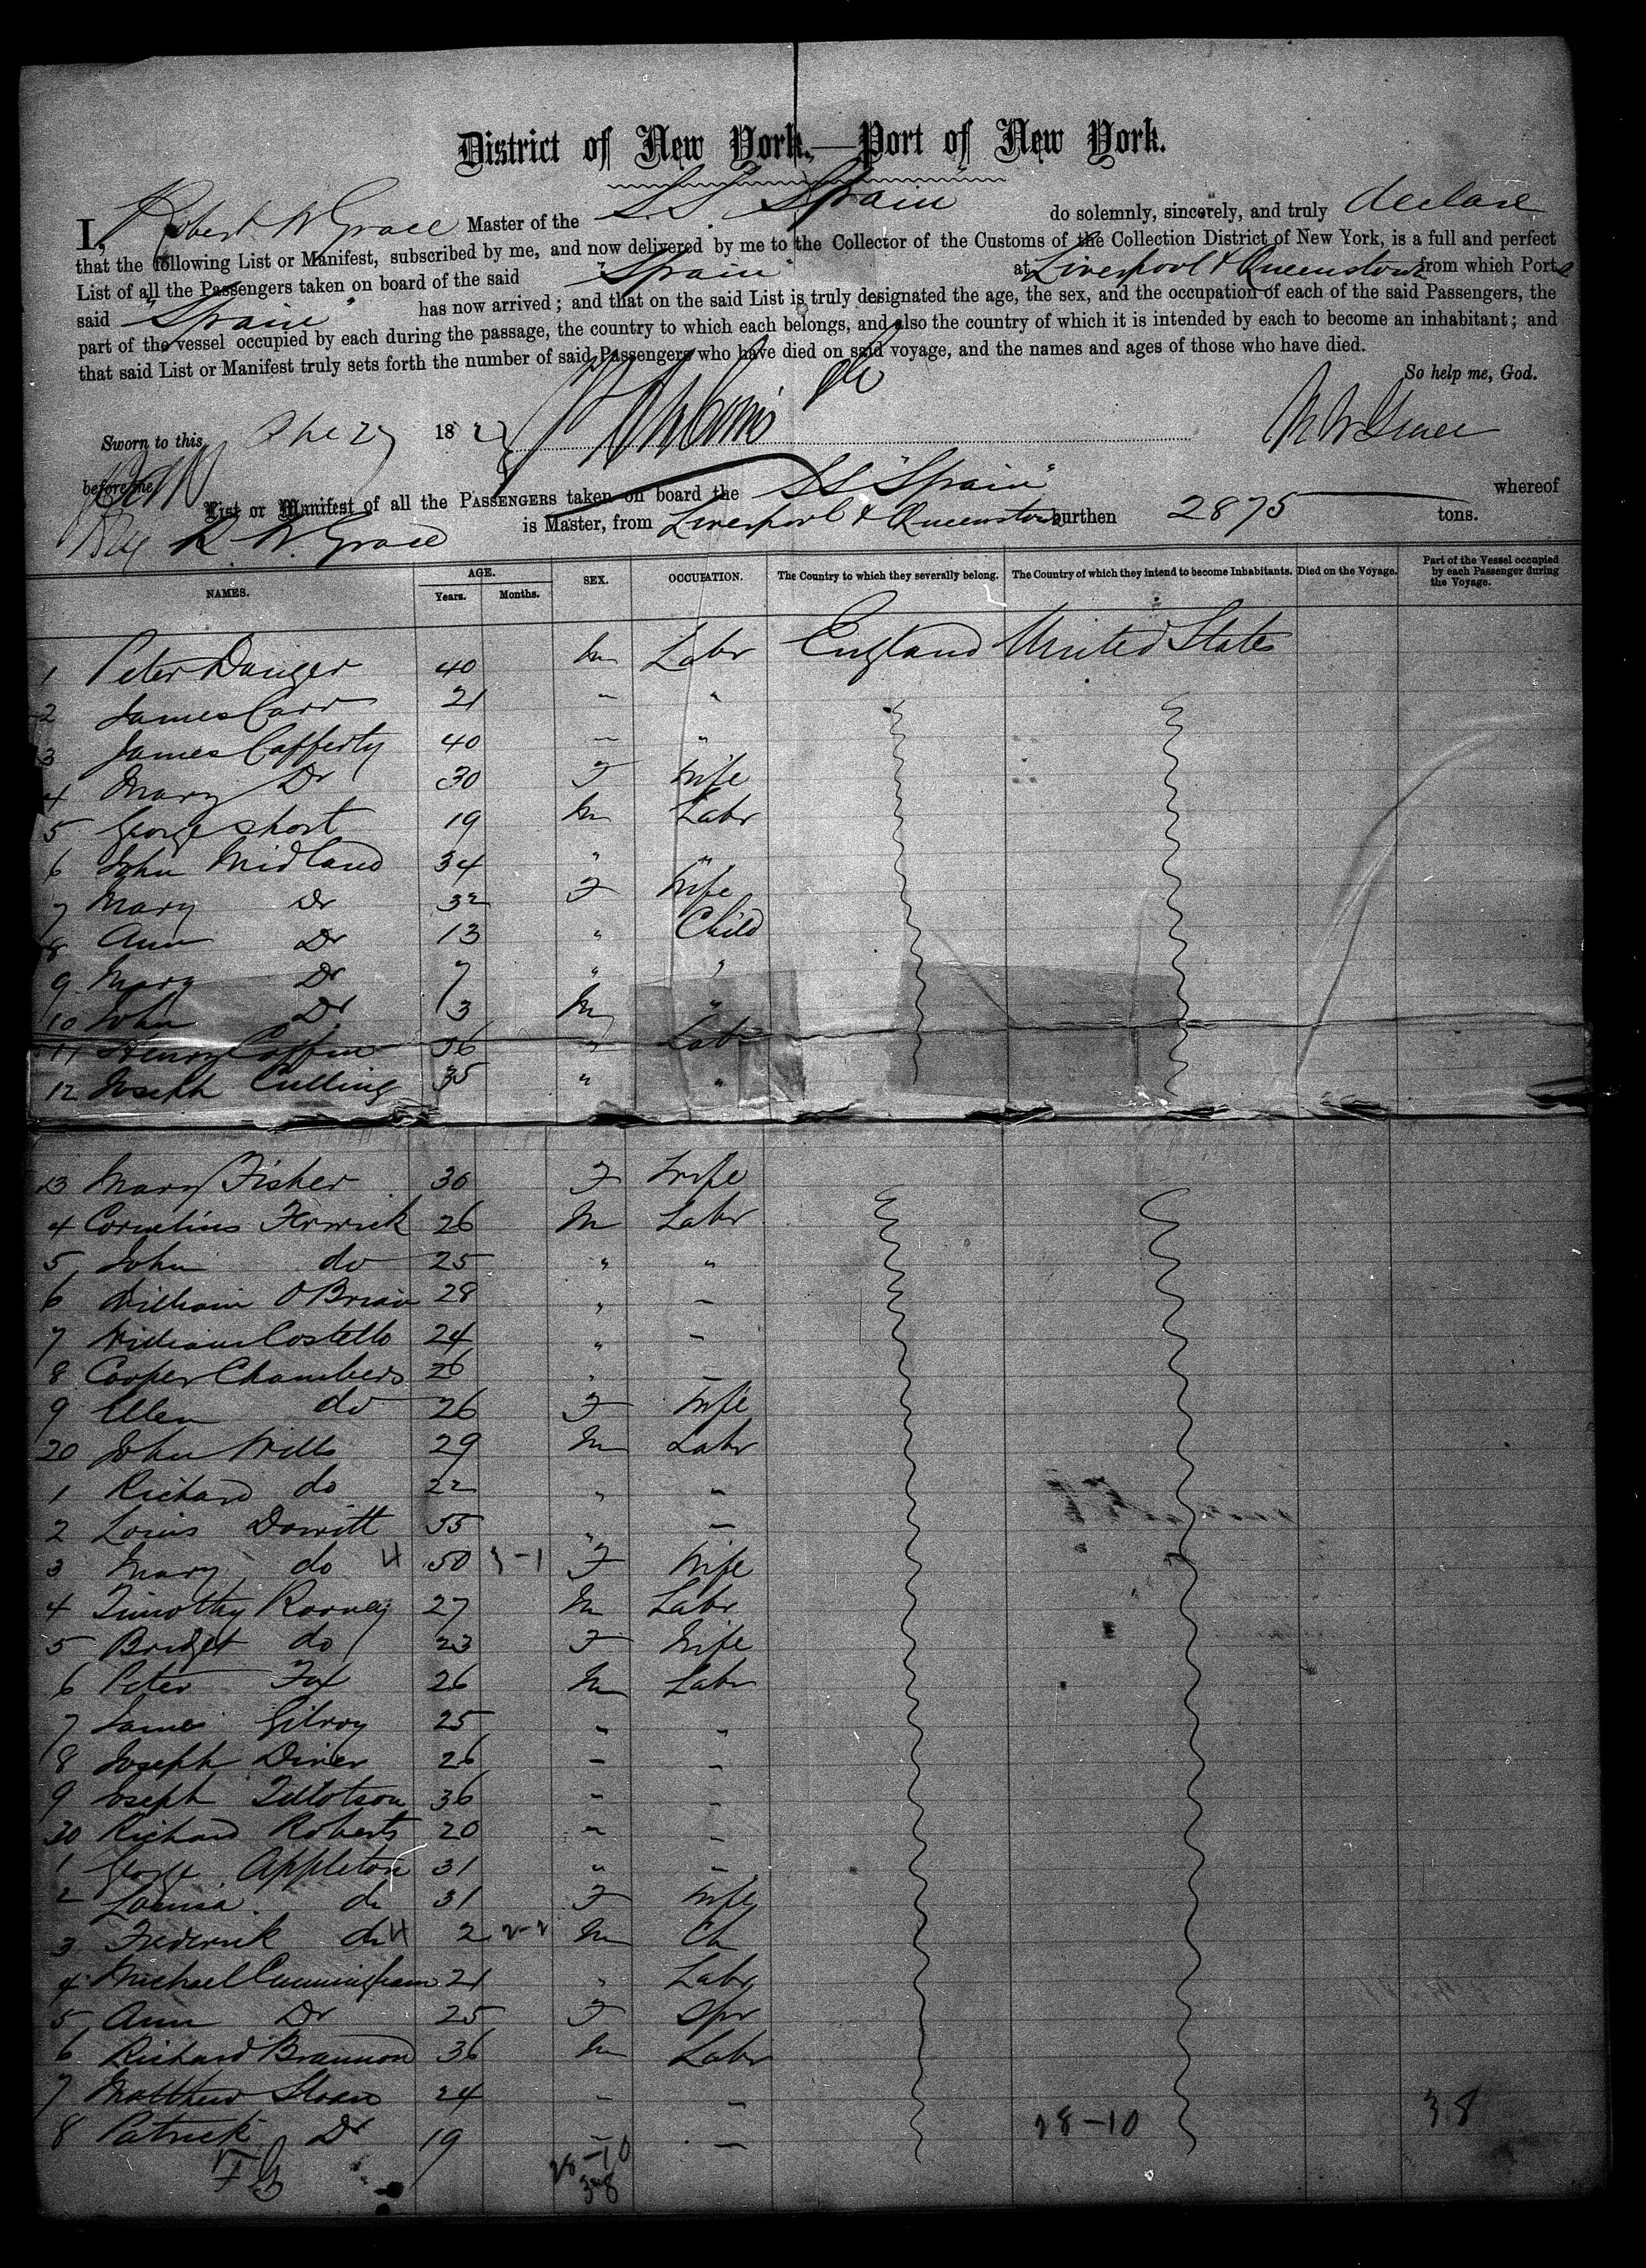 District of New York.—Port of New York.
I, Robert W Grace Master of the S.S. Spain do solemnly, sincerely, and truly declare
that the following List or Manifest, subscribed by me, and now delivered by me to the Collector of the Customs of the Collection District of New York, is a full and perfect
List of all the Passengers taken on board of the said "Spain" at Liverpool & Queenstown from which Ports
said "Spain" has now arrived; and that on the said List is truly designated the age, the sex, and the occupation of each of the said Passengers, the
part of the vessel occupied by each during the passage, the country to which each belongs, and also the country of which it is intended by each to become an inhabitant; and
that said List or Manifest truly sets forth the number of said Passengers who have died on said voyage, and the names and ages of those who have died.
So help me, God.
Sworn to this 27 18 R W Grace
before me
List or Manifest of all the PASSENGERS taken on board the SS "Spain" whereof
R. W. Grace is Master, from Liverpool & Queenstown burthen 2875 tons.
NAMES. AGE. Years. Months. SEX. OCCUPATION. The Country to which they severally belong. The Country of which they intend to become Inhabitants. Died on the Voyage. Part of the Vessel occupied by each Passenger during the Voyage.
1 Peter Danger 40 M Labr England United States
2 James Carr 21 " "
3 James Cafferty 40 " "
4 Mary Do 30 F Wife
5 George Short 19 M Labr
6 John Midland 34 " "
7 Mary Do 32 F Wife
8 Ann Do 13 " Child
9 Mary Do 7 " "
10 John Do 3 M "
11 Henry Coffin 36 " Labr
12 Joseph Culling 35 " "
13 Mary Fisher 30 F Wife
4 Cornelius 26 M Labr
5 John do 25 " "
6 William O'Brian 28 " "
7 William Costello 24 " "
8 Cooper Chambers 26 " "
9 Ellen do 26 F Wife
20 John Wills 29 M Labr
1 Richard do 22 " "
2 Louis Dowitt 55 " "
3 Mary do 50 F Wife
4 Timothy Rooney 27 M Labr
5 Bridget do 23 F Wife
6 Peter Fox 26 M Labr
7 James Gilroy 25 " "
8 Joseph Diver 26 " "
9 Joseph Tillotson 36 " "
30 Richard Roberts 20 " "
1 George Appleton 31 " "
2 Louisa do 31 F Wife
3 Frederick do 2 M Ch
4 Michael Cunningham 21 " Labr
5 Ann Do 25 F Spr
6 Richard Brannon 36 M Labr
7 Matthew Sloan 24 " "
8 Patrick Do 19 " "
28-10 38
28-10
38